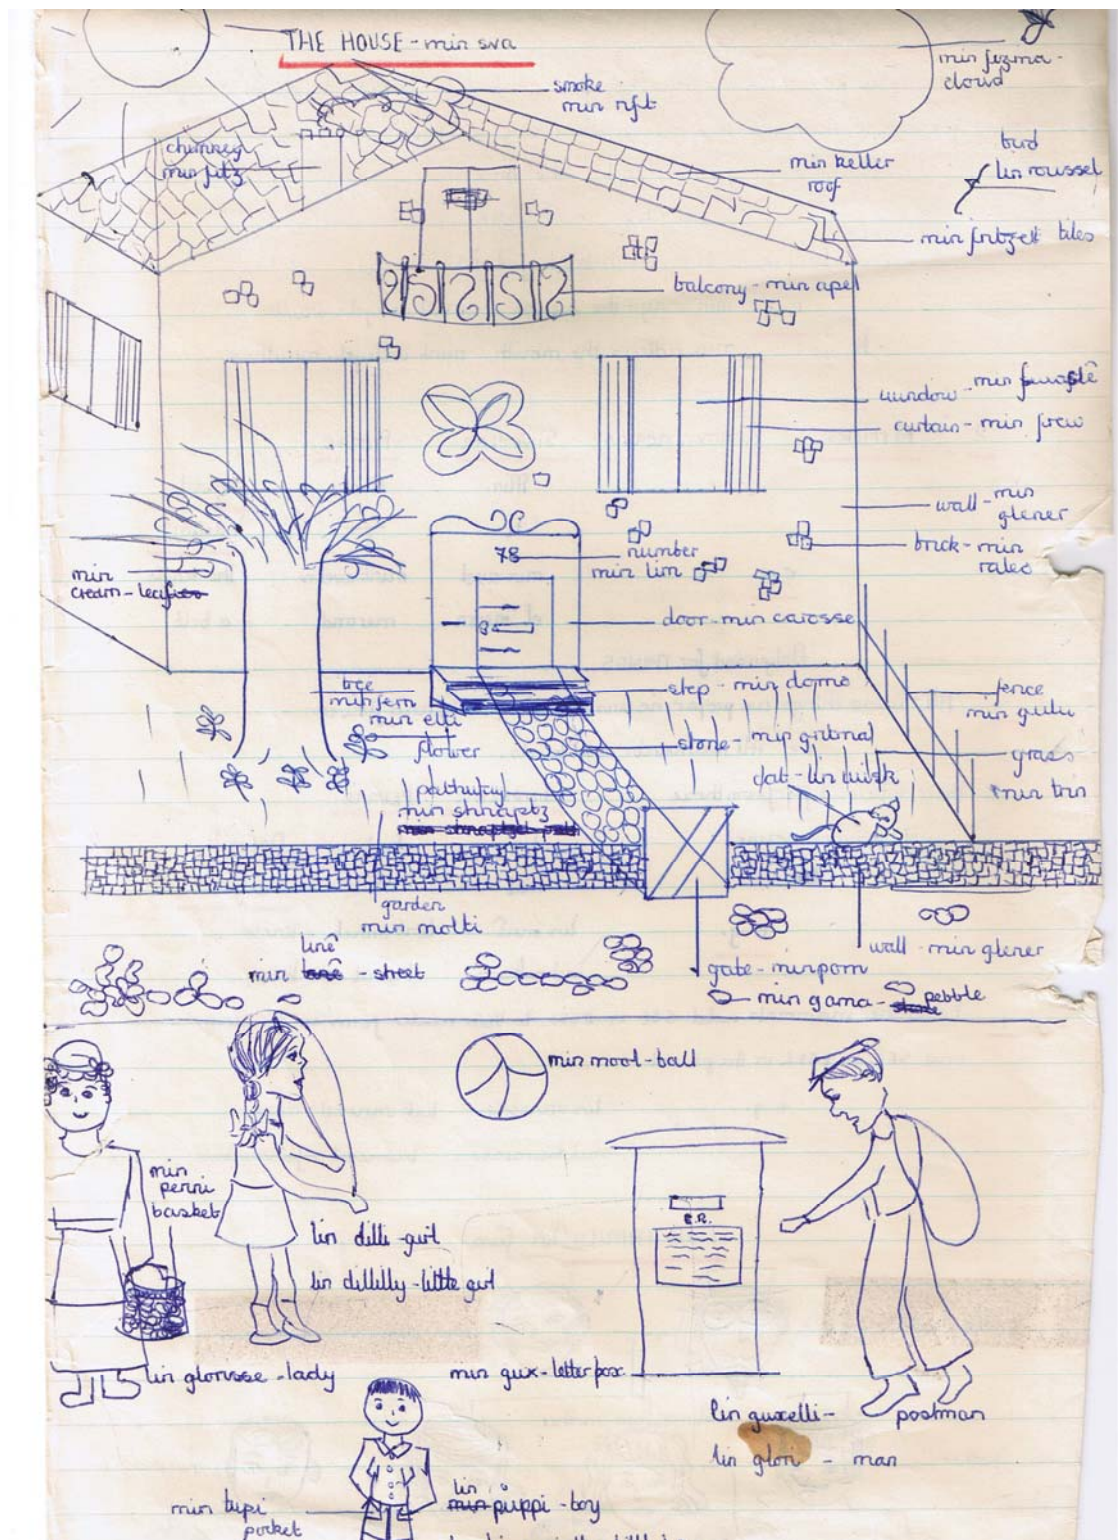 THE HOUSE - min sva
min fezma -
cloud
smoke
min nft
chimney
min fitz
min keller
roof
bird
lin roussel
min fritzett tiles
balcony - min apel
window - min
curtain - min frew
wall - min
glener
brick - min
raleo
78
number
min lim
min
cream -
door - min carosse
tree
min fern
min elti
flower
step - min domo
fence
min gudu
stone - min gribnal
grass
min trin
cat - lin luisk
pathway
min shnaptz
garden
min molti
linê
min - street
wall - min glener
gate - min pom
min gama - pebble
min moot - ball
min
perni
basket
E.R.
lin dilli - girl
lin dillilly - little girl
lin glorisse - lady
min gux - letter box
lin guxelli - postman
lin glori - man
min tupi
pocket
lin
puppi - boy